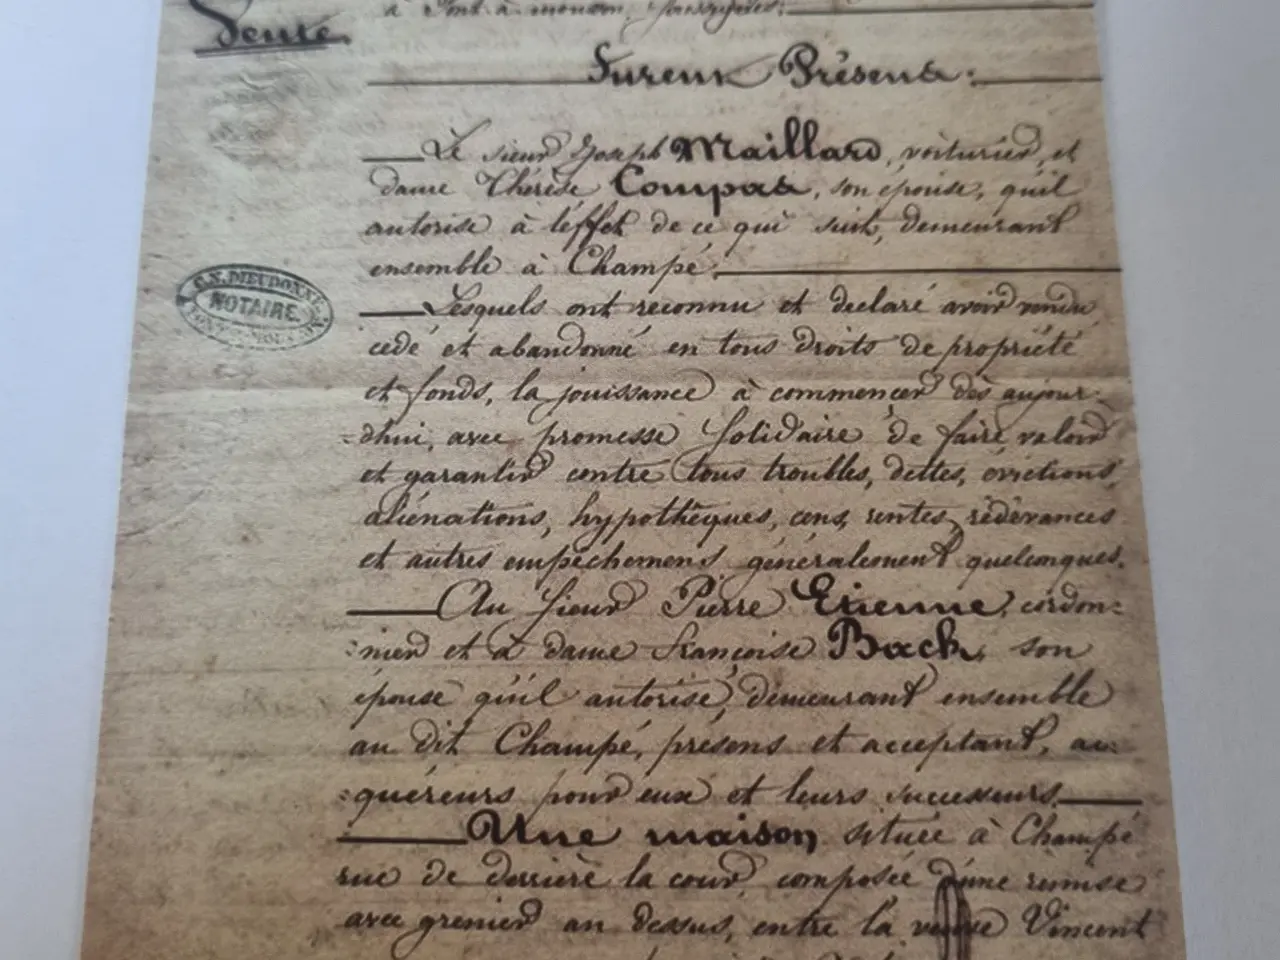 à Pont à mousson, soussignés;
Vente
Furent Présens:
Le sieur Joseph Maillard, voiturier, et
dame Thérèse Compas, son épouse, qu'il
autorise à l'effet de ce qui suit, demeurant
ensemble à Champé.
L. C. N. DIEUDONNÉ
NOTAIRE
Lesquels ont reconnu et declaré avoir vendu
cédé et abandonné en tous droits de propriété
et fonds, la jouissance à commencer dès aujour-
=dhui, avec promesse solidaire de faire valoir
et garantir contre tous troubles, dettes, évictions,
aliénations, hypothèques, cens, rentes, rédevances
et autres empêchemens généralement quelconques.
Au sieur Pierre Etienne, cordon=
=nier et à dame Françoise Bach, son
épouse qu'il autorise, demeurant ensemble
au dit Champé, présens et acceptant, ac=
=quéreurs pour eux et leurs successeurs.
Une maison située à Champé
rue de derrière la cour, composée d'une remise
avec grenier au dessus, entre la veuve Vincent